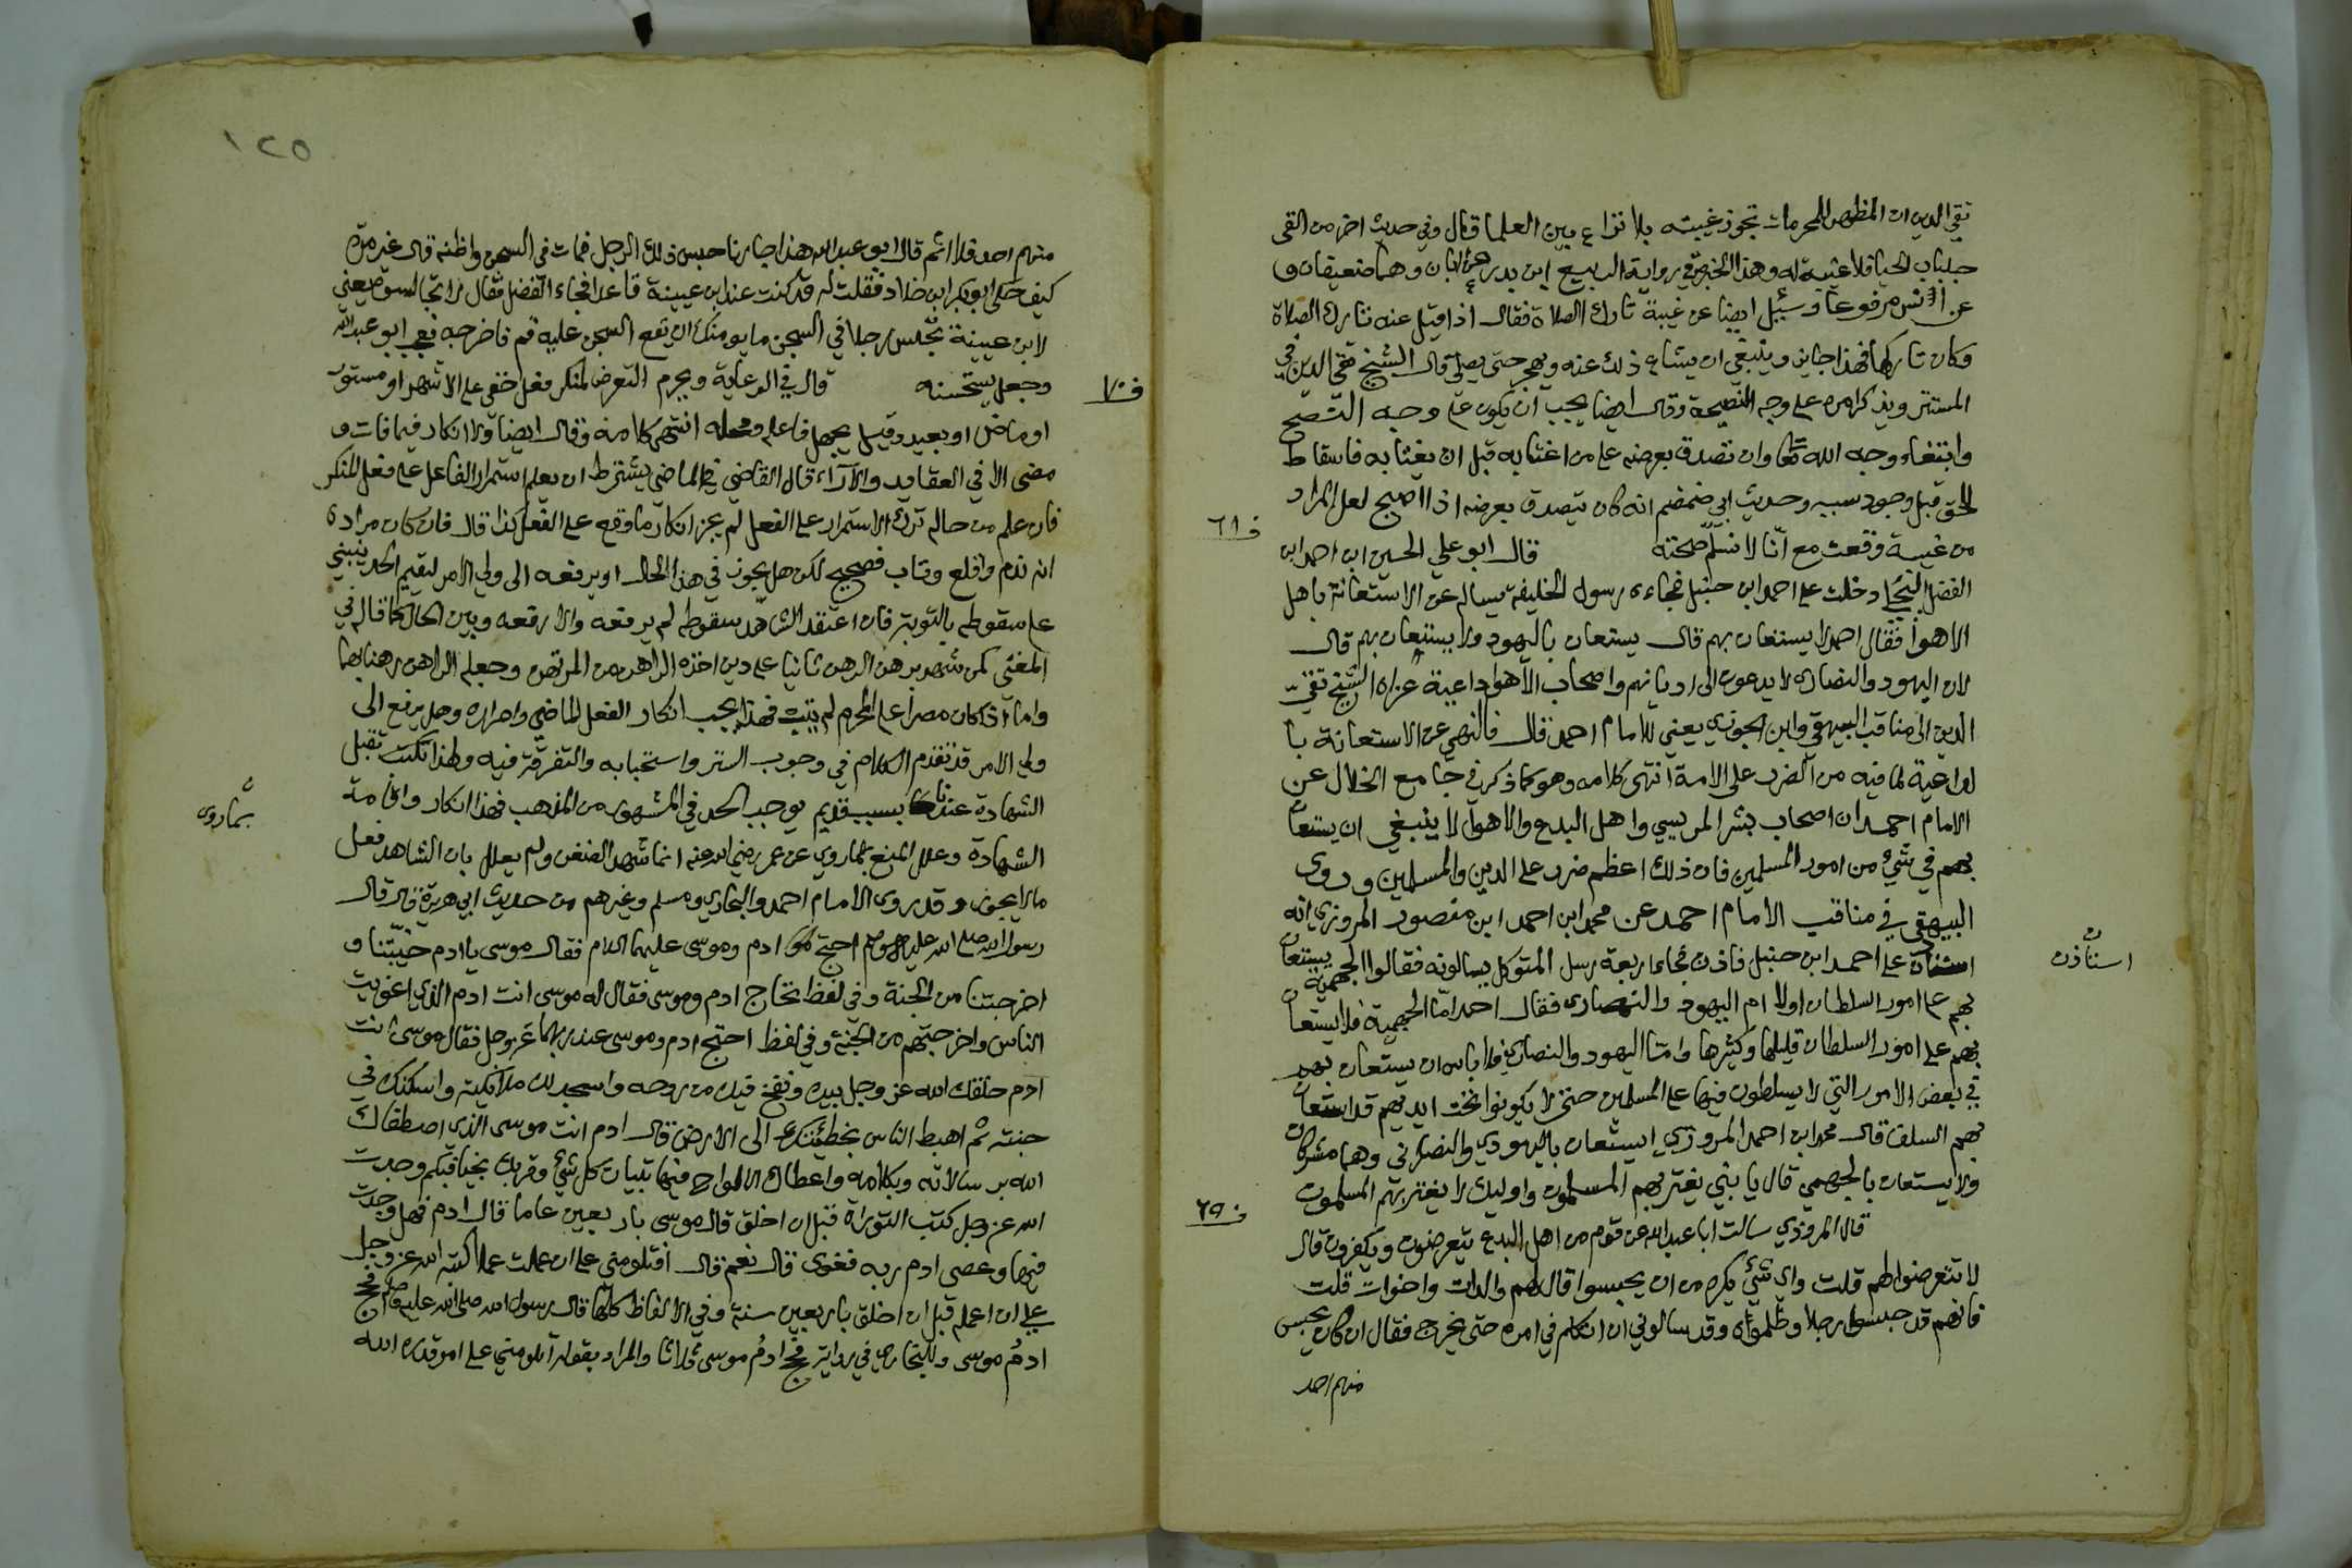 تقي الدين ان المظهر للمحرمات تجوز غيبته بلا نزاع بين العلما وقال وفي حديث اخر من القى
جلباب الحيا فلا غيبة له وهذا الخبر في رواية الربيع ابن بدر عن ابان وهما ضعيفان و
عن انس مرفوعا وسئل ايضا عن غيبة تارك الصلاة فقال اذا قيل عنه تارك الصلاة
وكان تاركها فهذا جايز وينبغي ان يشاع ذلك عنه ويهجر حتى يصلي قال الشيخ تقي الدين في
المستتر ويذكر امره على وجه النصيحة وقال ايضا يجب ان يكون على وجه النصح
وابتغاء وجه الله تعا وان تصدق بعرضه على من اغتابه قبل ان يغتابه فاسقاط
للحق قبل وجود سببه وحديث ابي ضمضم انه كان يتصدق بعرضه اذا اصبح لعل المراد
من غيبة وقعت مع انا لا نسلم صحته قال ابو علي الحسين ابن احمد ابن
ف ٦١
الفضل البلخي دخلت على احمد ابن حنبل فجاءه رسول الخليفة يساله عن الاستعانة باهل
الاهوا فقال احمد لا يستعان بهم قال يستعان باليهود ولا يستعان بهم قال
لان اليهود والنصارى لا يدعون الى اديانهم واصحاب الاهوا داعية عزاه الشيخ تقي
الدين الى مناقب البيهقي وابن الجوزي يعني للامام احمد قال فالنهي عن الاستعانة با
لداعية لما فيه من الضرر على الامة انتهى كلامه وهو كما ذكر في جامع الخلال عن
الامام احمد ان اصحاب بشر المريسي واهل البدع والاهوا لا ينبغي ان يستعان
بهم في شيء من امور المسلمين فان ذلك اعظم ضرر على الدين والمسلمين وروى
البيهقي في مناقب الامام احمد عن محمد ابن احمد ابن منصور المروزي انه
استاذن على احمد ابن حنبل فاذن فجاء اربعة رسل المتوكل يسالونه فقالوا الجهمية يستعان
استاذن
بهم على امور السلطان اولا ام اليهود والنصارى فقال احمد اما الجهمية فلا يستعان
بهم على امور السلطان قليلها وكثيرها واما اليهود والنصارى فلا باس ان يستعان بهم
في بعض الامور التي لا يسلطون فيها على المسلمين حتى لا يكونوا تحت ايديهم قد استعان
بهم السلف قال محمد ابن احمد المروزي ايستعان باليهودي والنصراني وهما مشركان
ولا يستعان بالجهمي قال يا بني يغتر بهم المسلمون واوليك لا يغتر بهم المسلمون
ف ٦٩
قال المروذي سالت ابا عبد الله عن قوم من اهل البدع يتعرضون ويكفرون قال
لا تتعرضوا لهم قلت واي شيء يكره من ان يحبسوا قال لهم والدات واخوات قلت
فانهم قد حبسوا رجلا وظلموه وقد سالوني ان اتكلم في امره حتى يخرج فقال ان كان يحبس
منهم احد
١٢٥
منهم احد فلا اثم قال ابو عبد الله هذا جارنا حبس ذلك الرجل فمات في السجن واظنه قال غير مرة
كيف حكى ابو بكر ابن خلاد فقلت له قد كنت عند ابن عيينة قاعدا فجاء الفضل فقال لا تجالسوه يعني
لابن عيينة تحبس رجلا في السجن ما يومنك ان يقع السجن عليه قم فاخرجه فعجب ابو عبد الله
وجعل يستحسنه قال في الرعاية ويحرم التعرض لمنكر فعل خفي على الاشهر او مستور
ف ٧٠
او ماض او بعيد وقيل يجهل فاعله ومحله انتهى كلامه وقال ايضا ولا انكار فيما فات و
مضى الا في العقايد والآراء قال القاضي في الماضي يشترط ان يعلم استمرار الفاعل على فعل المنكر
فان علم من حاله ترك الاستمرار على الفعل لم يجز انكار ما وقع على الفعل كذا قال فان كان مراده
انه ندم واقلع وتاب فصحيح لكن هل يجوز في هذا الحال او يرفعه الى ولي الامر ليقيم الحد ينبني
على سقوطه بالتوبة فان اعتقد الشاهد سقوطه لم يرفعه والا رفعه وبين الحال كما قال في
المغني كمن شهد برهن الرهن ثانيا على دين اخذه الراهن من المرتهن وجعله الراهن رهنا بهما
واما اذا كان مصرا على المحرم لم يتب فهذا يجب انكار الفعل الماضي واصراره وهل يرفع الى
ولي الامر قد تقدم الكلام في وجوب الستر واستحبابه والتفرقة فيه ولهذا نكت تقبل
الشهادة عندنا بسبب قديم يوجب الحد في المشهور من المذهب فهذا انكار واقامة
الشهادة وعلل المنع بما روي عن عمر رضي الله عنه انما شهد لضغن ولم يعلل بان الشاهد فعل
بما روى
ما لا يجوز وقد روى الامام احمد والبخاري ومسلم وغيرهم من حديث ابي هريرة قال قال
رسول الله صلى الله عليه وسلم احتج ادم وموسى عليهما السلام فقال موسى يا ادم خيبتنا و
اخرجتنا من الجنة وفي لفظ تحاج ادم وموسى فقال له موسى انت ادم الذي اغويت
الناس واخرجتهم من الجنة وفي لفظ احتج ادم وموسى عند ربهما عز وجل فقال موسى انت
ادم خلقك الله عز وجل بيده ونفخ فيك من روحه واسجد لك ملائكته واسكنك في
جنته ثم اهبط الناس بخطيئتك الى الارض قال ادم انت موسى الذي اصطفاك
الله برسالاته وبكلامه واعطاك الالواح فيها تبيان كل شيء وقربك نجيا فبكم وجدت
الله عز وجل كتب التوراة قبل ان اخلق قال موسى باربعين عاما قال ادم فهل وجدت
فيها وعصى ادم ربه فغوى قال نعم قال افتلومني على ان عملت عملا كتبه الله عز وجل
علي ان اعمله قبل ان اخلق باربعين سنة وفي الالفاظ كلها قال رسول الله صلى الله عليه وسلم فحج
ادم موسى وللبخاري في رواية فحج ادم موسى ثلاثا والمراد بقوله اتلومني على امر قدره الله